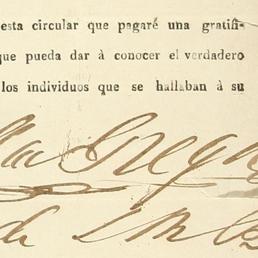 esta circular que pagaré una gratifi-
que pueda dar à conocer el verdadero
los individuos que se hallaban á su
MacGreg